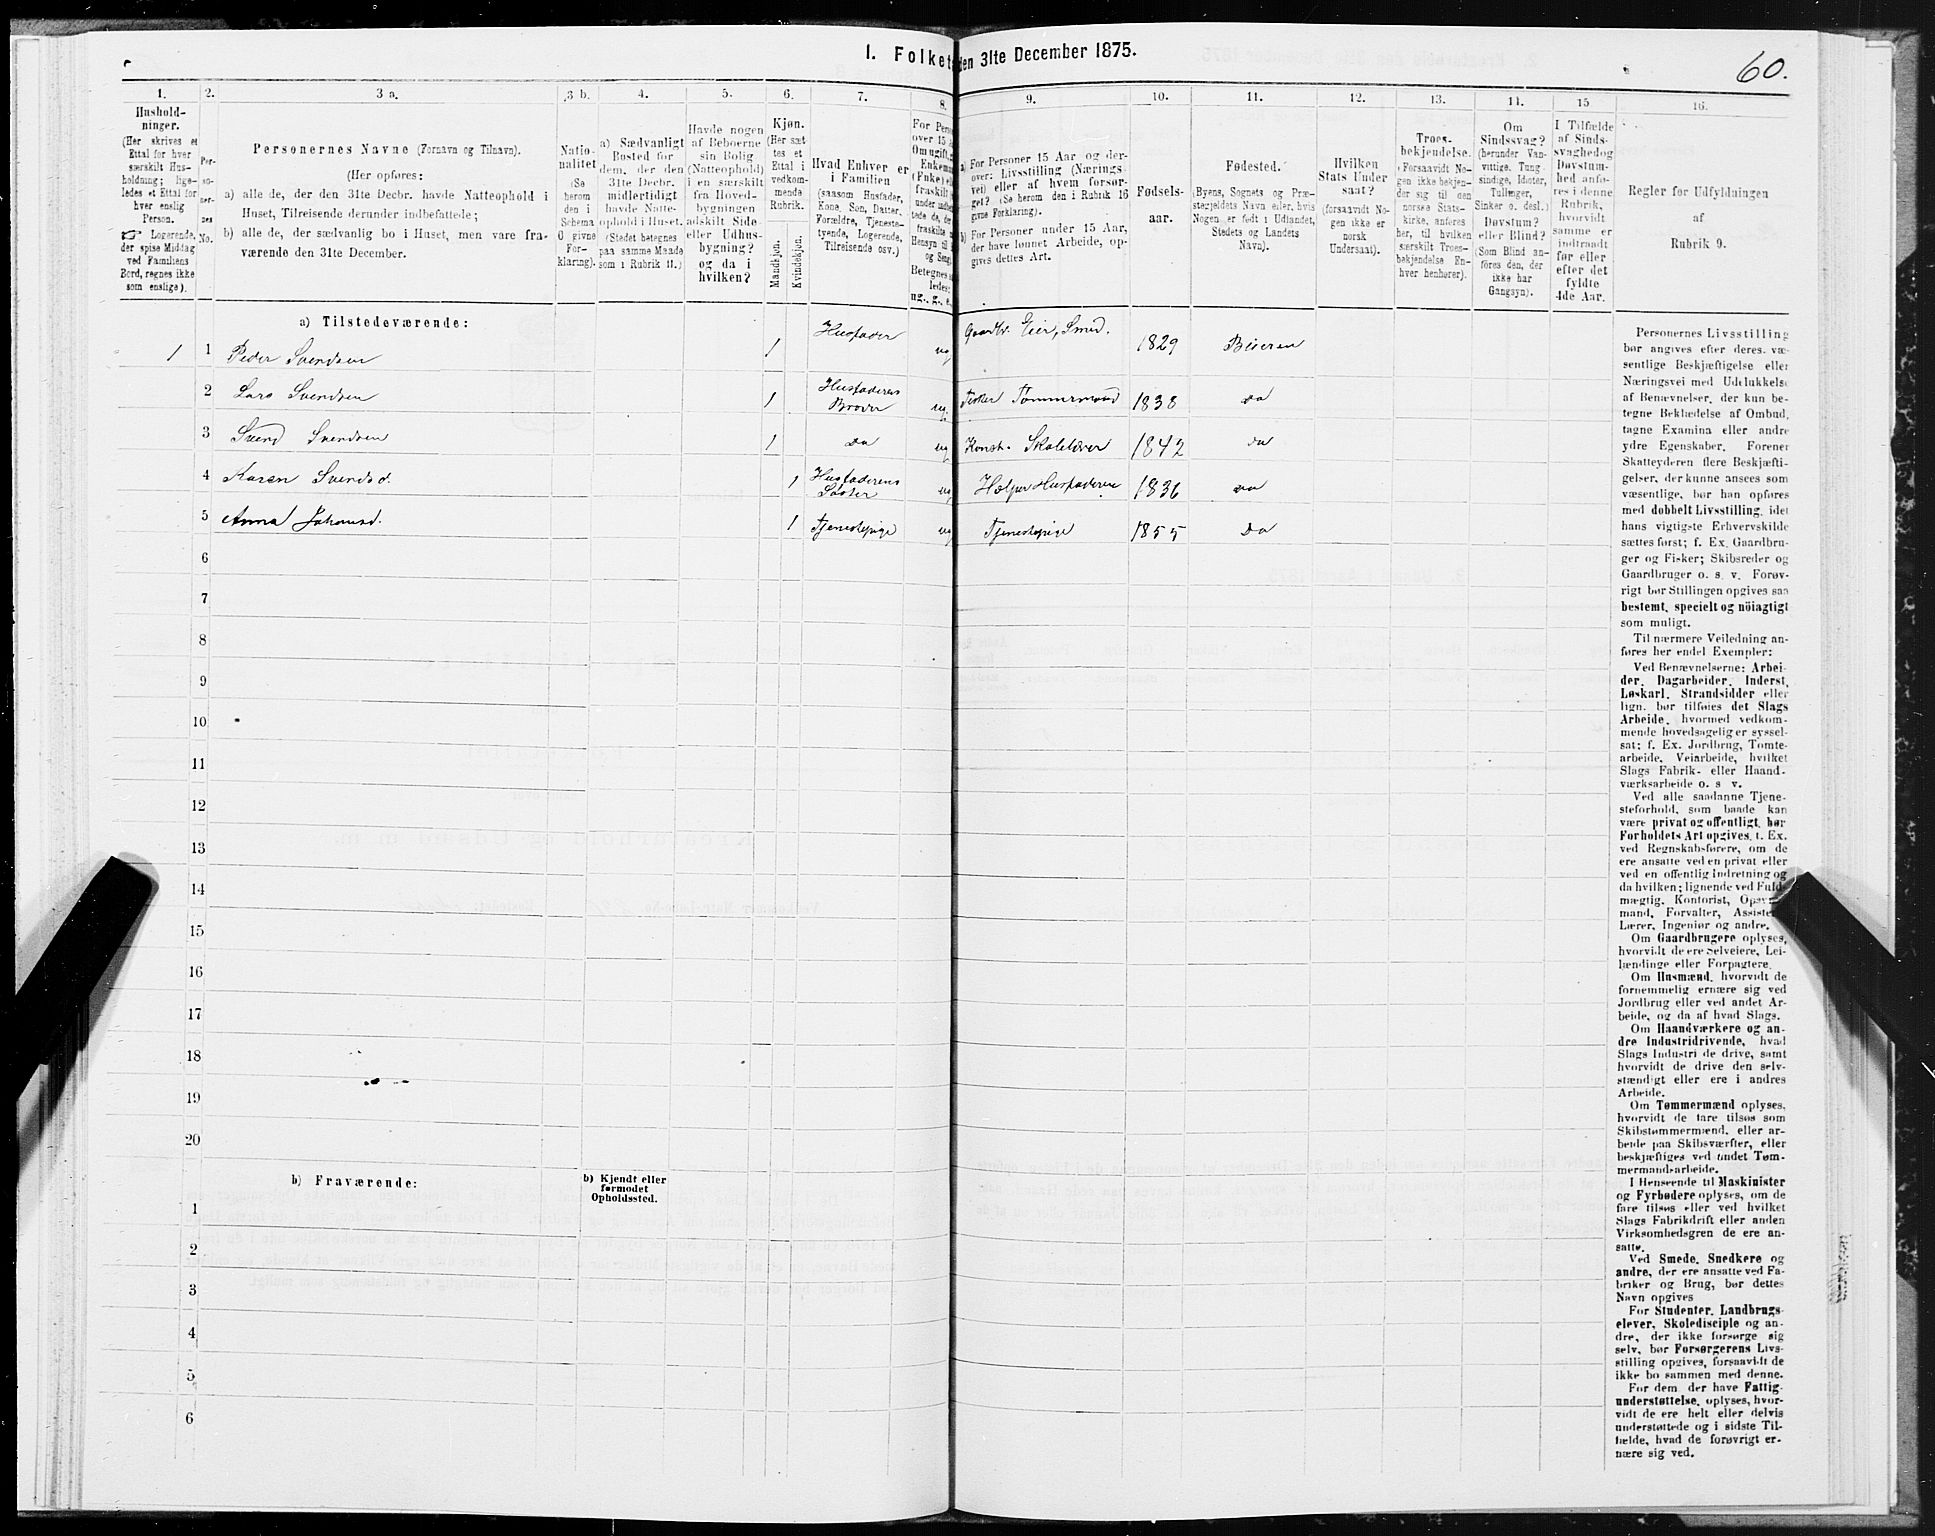 1. Folket
den 31te December 1875.
60.
1.
Hushold-
ninger.
(Her skrives et
Ettal for hver
særskilt Hus-
holdning; lige-
ledes et Ettal for
hver enslig
Person.
Logerende,
der spise Middag
ved Familiens
Bord, regnes ikke
som enslige).
2.
Per-
so-
ner-
nes
No.
3 a.
Personernes Navne (Fornavn og Tilnavn).
(Her opføres:
a) alle de, der den 31te Decbr. havde Natteophold i
Huset, Tilreisende derunder indbefattede;
b) alle de, der sædvanlig bo i Huset, men vare fra-
værende den 31te December.
3 b.
Natio-
nalitet
(Se
herom
den i
Schema
0 givne
For-
klaring).
4.
a) Sædvanligt
Bosted for
dem, der den
31te Decbr.
midlertidigt
havde Natte-
ophold i Huset.
(Stedet betegnes
paa samme Maade
som i Rubrik 11.)
5.
Havde nogen
af Beboerne
sin Bolig
(Natteophold)
i en særskilt
fra Hoved-
bygningen
adskilt Side-
eller Udhus-
bygning?
og da i
hvilken?
6.
Kjøn.
(Her sæt-
tes et
Ettal i
vedkom-
mende
Rubrik.
Mandkjøn.
Kvindekjøn.
7.
Hvad Enhver er
i Familien
(saasom Husfader,
Kone, Søn, Datter,
Forældre, Tjeneste-
tyende, Logerende,
Tilreisende osv.)
8.
For Pers
over 15 A
Om ugift,
Enkem
(Fnke) e
fraskilt
under indbe
tede de, d
fraskilte
Hensyn til
og Seng
Betegnes s
ledes:
ug., g., e.
9.
a) For Personer 15 Aar og der-
over: Livsstilling (Nærings-
vei) eller af hvem forsør-
get? (Se herom den i Rubrik 16
givne Forklaring).
b) For Personer under 15 Aar,
der have lønnet Arbeide, op-
gives dettes Art.
10.
Fødsels-
aar.
11.
Fødested.
(Byens, Sognets og Præ-
stegjeldets Navn eller, hvis
Nogen er født i Udlandet,
Stedets og Landets
Navn).
12.
Hvilken
Stats Under
saat?
(forsaavidt No-
gen ikke er
norsk
Undersaat).
13.
Troes-
bekjendelse.
(Forsaavidt No-
gen ikke bekjen-
der sig til den
norske Stats-
kirke, anføres
her, til hvilken
særskilt Troes-
bekjendelse En-
hver henhører).
14.
Om
Sindssvag?
(herunder Van-
vittige, Tung-
sindige, Idioter,
Tullinger,
Sinker o. desl.)
Døvstum?
eller Blind?
(Som Blind an-
føres den, der
ikke har
Gangsyn).
15
I Tilfælde
af Sinds-
svaghed og
Døvstum-
hed anfø-
res i denne
Rubrik,
hvorvidt
samme er
indtraadt
før eller
efter det
fyldte
4de Aar.
16.
Regler for Udfyldningen
af
Rubrik 9.
a) Tilstedeværende:
1 1 Peder Svendsen 1 Husfader ug, Gaardbr. Eier, Smed. 1829 Beieren
2 Lars Svendsen 1 Husfaderens Broder ug. Fisker Tømmermand 1838 Do
3 Svend Svendsen 1 Do ug, Konst. Skolelærer 1842 Do
4 Karen Svendsd. 1 Husfaderens Søster ug, Hælper Husfaderen 1836 Do
5 Anna Johansd. 1 Tjenestepige ug Tjenestepige 1855 Do
6
7
8
9
10
11
12
13
14
15
16
17
18
19
20
b) Fraværende:
b) Kjendt eller
formodet
Opholdssted.
1
2
3
4
5
6
Personernes Livsstilling
bør angives efter deres. væ-
sentlige Beskjæftigelse eller
Næringsvei med Udelukkelse
af Benævnelser, der kun be-
tegne Beklædelse af Ombud,
tagne Examina eller andre
ydre Egenskaber. Forener
Skatteyderen flere Beskjæfti-
gelser, der kunne ansees som
væsentlige, bør han opføres
med dobbelt Livsstilling, idet
hans vigtigste Erhvervskilde
sættes først; f. Ex. Gaardbru-
ger og Fisker; Skibsreder og
Gaardbruger o. s. v. Forøv-
rigt bør Stillingen opgives saa
bestemt, specielt og nöiagtigt
som muligt.
Til nærmere Veiledning an-
føres her endel Exempler:
Ved Benævnelserne: Arbei-
der, Dagarbeider, Inderst,
Løskarl, Strandsidder eller
lign. bør tilføies det Slags
Arbeide, hvormed vedkom-
mende hovedsagelig er syssel-
sat; f. Ex. Jordbrug, Tomte-
arbeide, Veiarbeide, hvilket
Slags Fabrik- eller Haand-
værksarbeide o. s v.
Ved alle saadanne Tjene-
steforhold, som baade kan
være privat og offentligt, bør
Forholdets Art opgives, t. Ex.
ved Regnskabsførere, om de
ere ansatte ved en privat eller
ved en offentlig Indretning og
da hvilken; lignende ved Fuld-
mægtig, Kontorist, Opsy
mand, Forvalter, Assiste
Lærer, Ingeniør og andre.
Om Gaardbrugere oplyses,
hvorvidt de ere Selveiere, Lei-
lændinge eller Forpagtere.
Om Husmænd, hvorvidt de
fornemmelig ernære sig ved
Jordbrug eller ved andet Ar-
beide, og da af hvad Slags.
Om Haandværkere og an-
dre Industridrivende, hvad
Slags Industri de drive, samt
hvorvidt de drive den selv-
stændigt eller ere i andres
Arbeide.
Om Tømmermænd oplyses,
hvorvidt de fare tilsøs som
Skibstømmermænd, eller ar-
beide paa Skibsværfter, eller
beskjæftiges ved andet Tøm-
mermandsarbeide.
I Henseende til Maskinister
og Fyrbødere oplyses, om de
fare tilsøs eller ved hvilket
Slags Fabrikdrift eller anden
Virksomhedsgren de ere an-
satte.
Ved Smede, Snedkere og
andre, der ere ansatte ved Fa-
briker og Brug, bør dettes
Navn opgives
For Studenter, Landbrugs-
elever, Skoledisciple og an-
dre, der ikke forsørge sig
selv, bør Forsørgerens Livs-
stilling opgives, forsaavidt de
ikke bo sammen med denne.
For dem, der have Fattig-
understøttelse, oplyses, hvor-
vidt de ere helt eller delvis
understøttede og i sidste Til-
fælde, hvad de forøvrigt er-
nære sig ved.